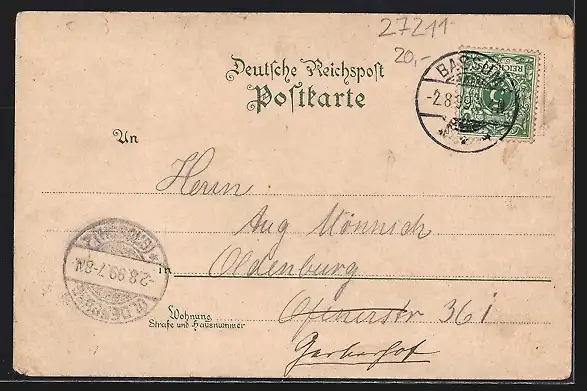 27211
20,-
Deutsche Reichspost
Postkarte
BASSUM
-2.8.99
REICHSPOST
5
An
Herrn
Aug Mönnich
in Oldenburg
Wohnung
Straße und Hausnummer
Ofenerstr 36 i
Gerberhof
OLDENBURG
-2.8.99.7-8N.
(GRSZGT)